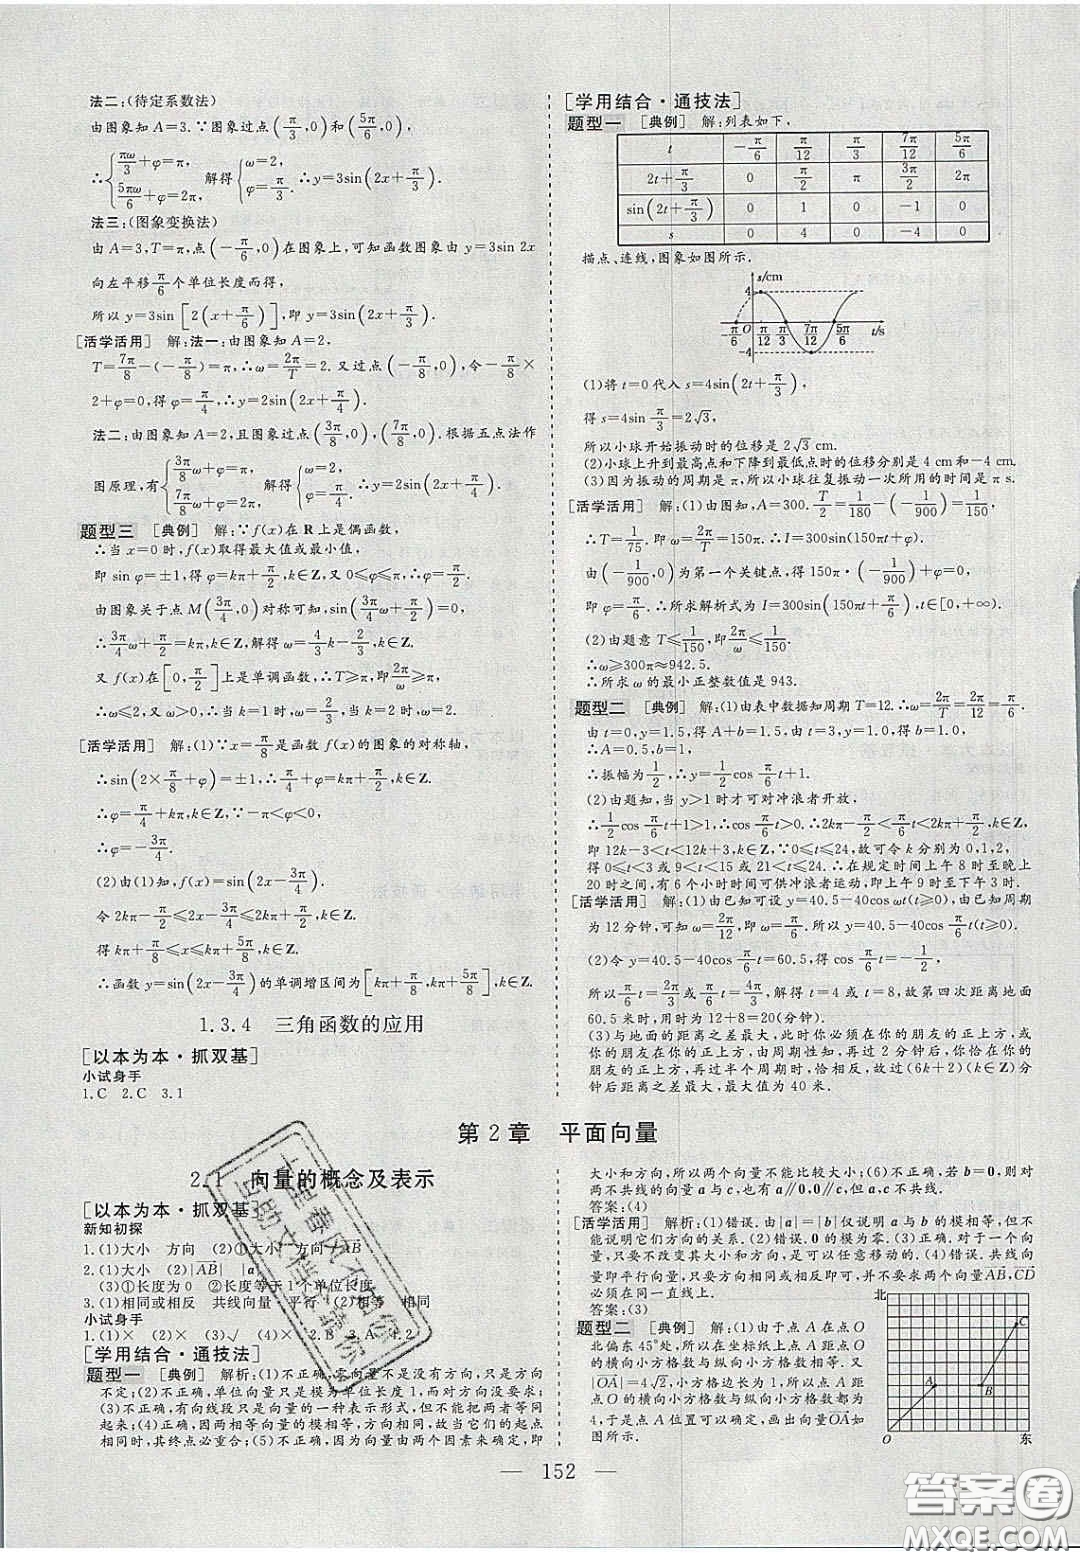 法二:(待定系数法)
由图象知 A=3.∵图象过点(π/3,0)和(5π/6,0),
∴{πω/3+φ=π, 5πω/6+φ=2π, 解得{ω=2, φ=π/3. ∴y=3sin(2x+π/3).
法三:(图象变换法)
由 A=3,T=π,点(-π/6,0)在图象上,可知函数图象由 y=3sin 2x
向左平移π/6个单位长度而得,
所以 y=3sin[2(x+π/6)],即 y=3sin(2x+π/3).
[活学活用] 解:法一:由图象知 A=2,
T=7π/8-(-π/8)=π,∴ω=2π/T=2. 又过点(-π/8,0),令-π/8×
2+φ=0,得 φ=π/4,∴y=2sin(2x+π/4).
法二:由图象知 A=2,且图象过点(3π/8,0),(7π/8,0).根据五点法作
图原理,有{3π/8 ω+φ=π, 7π/8 ω+φ=2π, 解得{ω=2, φ=π/4. ∴y=2sin(2x+π/4).
题型三 [典例] 解:∵f(x)在 R 上是偶函数,
∴当 x=0 时,f(x)取得最大值或最小值,
即 sin φ=±1,得 φ=kπ+π/2,k∈Z,又 0≤φ≤π,∴φ=π/2.
由图象关于点 M(3π/4,0)对称可知,sin(3π/4 ω+π/2)=0,
∴3π/4 ω+π/2=kπ,k∈Z,解得 ω=4/3 k-2/3,k∈Z.
又 f(x)在[0,π/2]上是单调函数,∴T≥π,即2π/ω≥π,
∴ω≤2,又 ω>0,∴当 k=1 时,ω=2/3,当 k=2 时,ω=2.
[活学活用] 解:(1)∵x=π/8是函数 f(x)的图象的对称轴,
∴sin(2×π/8+φ)=±1,∴π/4+φ=kπ+π/2,k∈Z,
∴φ=π/4+kπ,k∈Z.∵-π<φ<0,
∴φ=-3π/4.
(2)由(1)知,φ=-3π/4,因此 y=sin(2x-3π/4).
令 2kπ-π/2≤2x-3π/4≤2kπ+π/2,k∈Z.
得 kπ+π/8≤x≤kπ+5π/8,k∈Z,
∴函数 y=sin(2x-3π/4)的单调增区间为[kπ+π/8,kπ+5π/8],k∈Z.
1.3.4 三角函数的应用
[以本为本·抓双基]
小试身手
1.C 2.C 3.1
[学用结合·通技法]
题型一 [典例] 解:列表如下,
t -π/6 π/12 π/3 7π/12 5π/6
2t+π/3 0 π/2 π 3π/2 2π
sin(2t+π/3) 0 1 0 -1 0
s 0 4 0 -4 0
描点、连线,图象如图所示.
s/cm
4
-π/6 O π/12 π/3 7π/12 5π/6 t/s
-4
(1)将 t=0 代入 s=4sin(2t+π/3),
得 s=4sin π/3=2√3,
所以小球开始振动时的位移是 2√3 cm.
(2)小球上升到最高点和下降到最低点时的位移分别是 4 cm 和-4 cm.
(3)因为振动的周期是 π,所以小球往复振动一次所用的时间是 π s.
[活学活用] 解:(1)由图知,A=300. T/2=1/180-(-1/900)=1/150,
∴T=1/75. ∴ω=2π/T=150π. ∴I=300sin(150πt+φ).
由(-1/900,0)为第一个关键点,得 150π·(-1/900)+φ=0,
即 φ=π/6. ∴所求解析式为 I=300sin(150πt+π/6),t∈[0,+∞).
(2)由题意 T≤1/150,即2π/ω≤1/150,
∴ω≥300π≈942.5.
∴所求 ω 的最小正整数值是 943.
题型二 [典例] 解:(1)由表中数据知周期 T=12.∴ω=2π/T=2π/12=π/6.
由 t=0,y=1.5,得 A+b=1.5,由 t=3,y=1.0,得 b=1.0,
∴A=0.5,b=1,
∴振幅为1/2,∴y=1/2cos π/6 t+1.
(2)由题知,当 y>1 时才可对冲浪者开放,
∴1/2cos π/6 t+1>1,∴cos π/6 t>0.∴2kπ-π/2<π/6 t<2kπ+π/2,k∈Z,
即 12k-3<t<12k+3,k∈Z.∵0≤t≤24,故可令 k 分别为 0,1,2,
得 0≤t<3 或 9<t<15 或 21<t≤24.∴在规定时间上午 8 时至晚上
20 时有 6 个小时可供冲浪者运动,即上午 9 时至下午 3 时.
[活学活用] 解:(1)由已知可设 y=40.5-40cos ωt(t≥0),由已知周期
为 12 分钟,可知 ω=2π/12,即 ω=π/6. 所以 y=40.5-40cos π/6 t(t≥0).
(2)令 y=40.5-40cos π/6 t=60.5,得 cos π/6 t=-1/2,
所以π/6 t=2π/3或π/6 t=4π/3,解得 t=4 或 t=8,故第四次距离地面
60.5 米时,用时为 12+8=20(分钟).
(3)与地面的距离之差最大,此时你必须在你的朋友的正上方,或
你的朋友在你的正上方,由周期性知,若你在你的朋友正上方,
你的朋友再过半个周期时,恰相反,故过(6k+2)(k∈Z)分
钟后距离之差最大,最大值为 40 米.
第2章 平面向量
2.1 向量的概念及表示
[以本为本·抓双基]
新知初探
1.(1)大小 方向 (2)①大小 方向 AB
2.(1)大小 |AB| |a|
(3)①长度为 0 ②长度等于 1 个单位长度
3.(1)相同或相反 共线向量 平行 (2)相等 相同
小试身手
1.(1)× (2)× (3)√ (4)× 2.B 3.A 4.2
[学用结合·通技法]
题型一 [典例] 解析:(1)不正确,零向量不是没有方向,只是方向不
定;(2)不正确,单位向量只是模为单位长度,而对方向没要求;
(3)不正确,有向线段只是向量的一种表示形式,但不能把两者等同
起来;(4)不正确,因两个向量的方向相同,故当它们的起点
相同时,其终点必重合;(5)不正确,向量由两个因素来确定,即
大小和方向,所以两个向量不能比较大小;(6)不正确,若 b=0,则对
两不共线的向量 a 与 c,也有 a∥0,0∥c,但 a,c 不共线.
答案:(4)
[活学活用] 解析:(1)错误.由|a|=|b|仅说明 a 与 b 的模相等,但不
能说明它们方向的关系.(2)错误.0 的模为零.(3)正确.对于一个
向量,只要不改变其大小和方向,是可以任意移动的.(4)错误.共线向
量即平行向量,只要方向相同或相反即可,并不要求两个向量AB,CD
必须在同一直线上.
答案:(3)
题型二 [典例] 解:(1)由于点 A 在点 O
北偏东 45°处,所以在坐标纸上点 A 距点 O
的横向小方格数与纵向小方格数相等.又
|OA|=4√2,小方格边长为 1,所以点 A 距点
O 的横向小方格数与纵向小方格数都为
4,于是点 A 位置可以确定,画出向量OA如
图所示.
北
C
A
B
O 东
152
上星春风不相似
互助文档灵靠你
答案圈
MXQE.COM